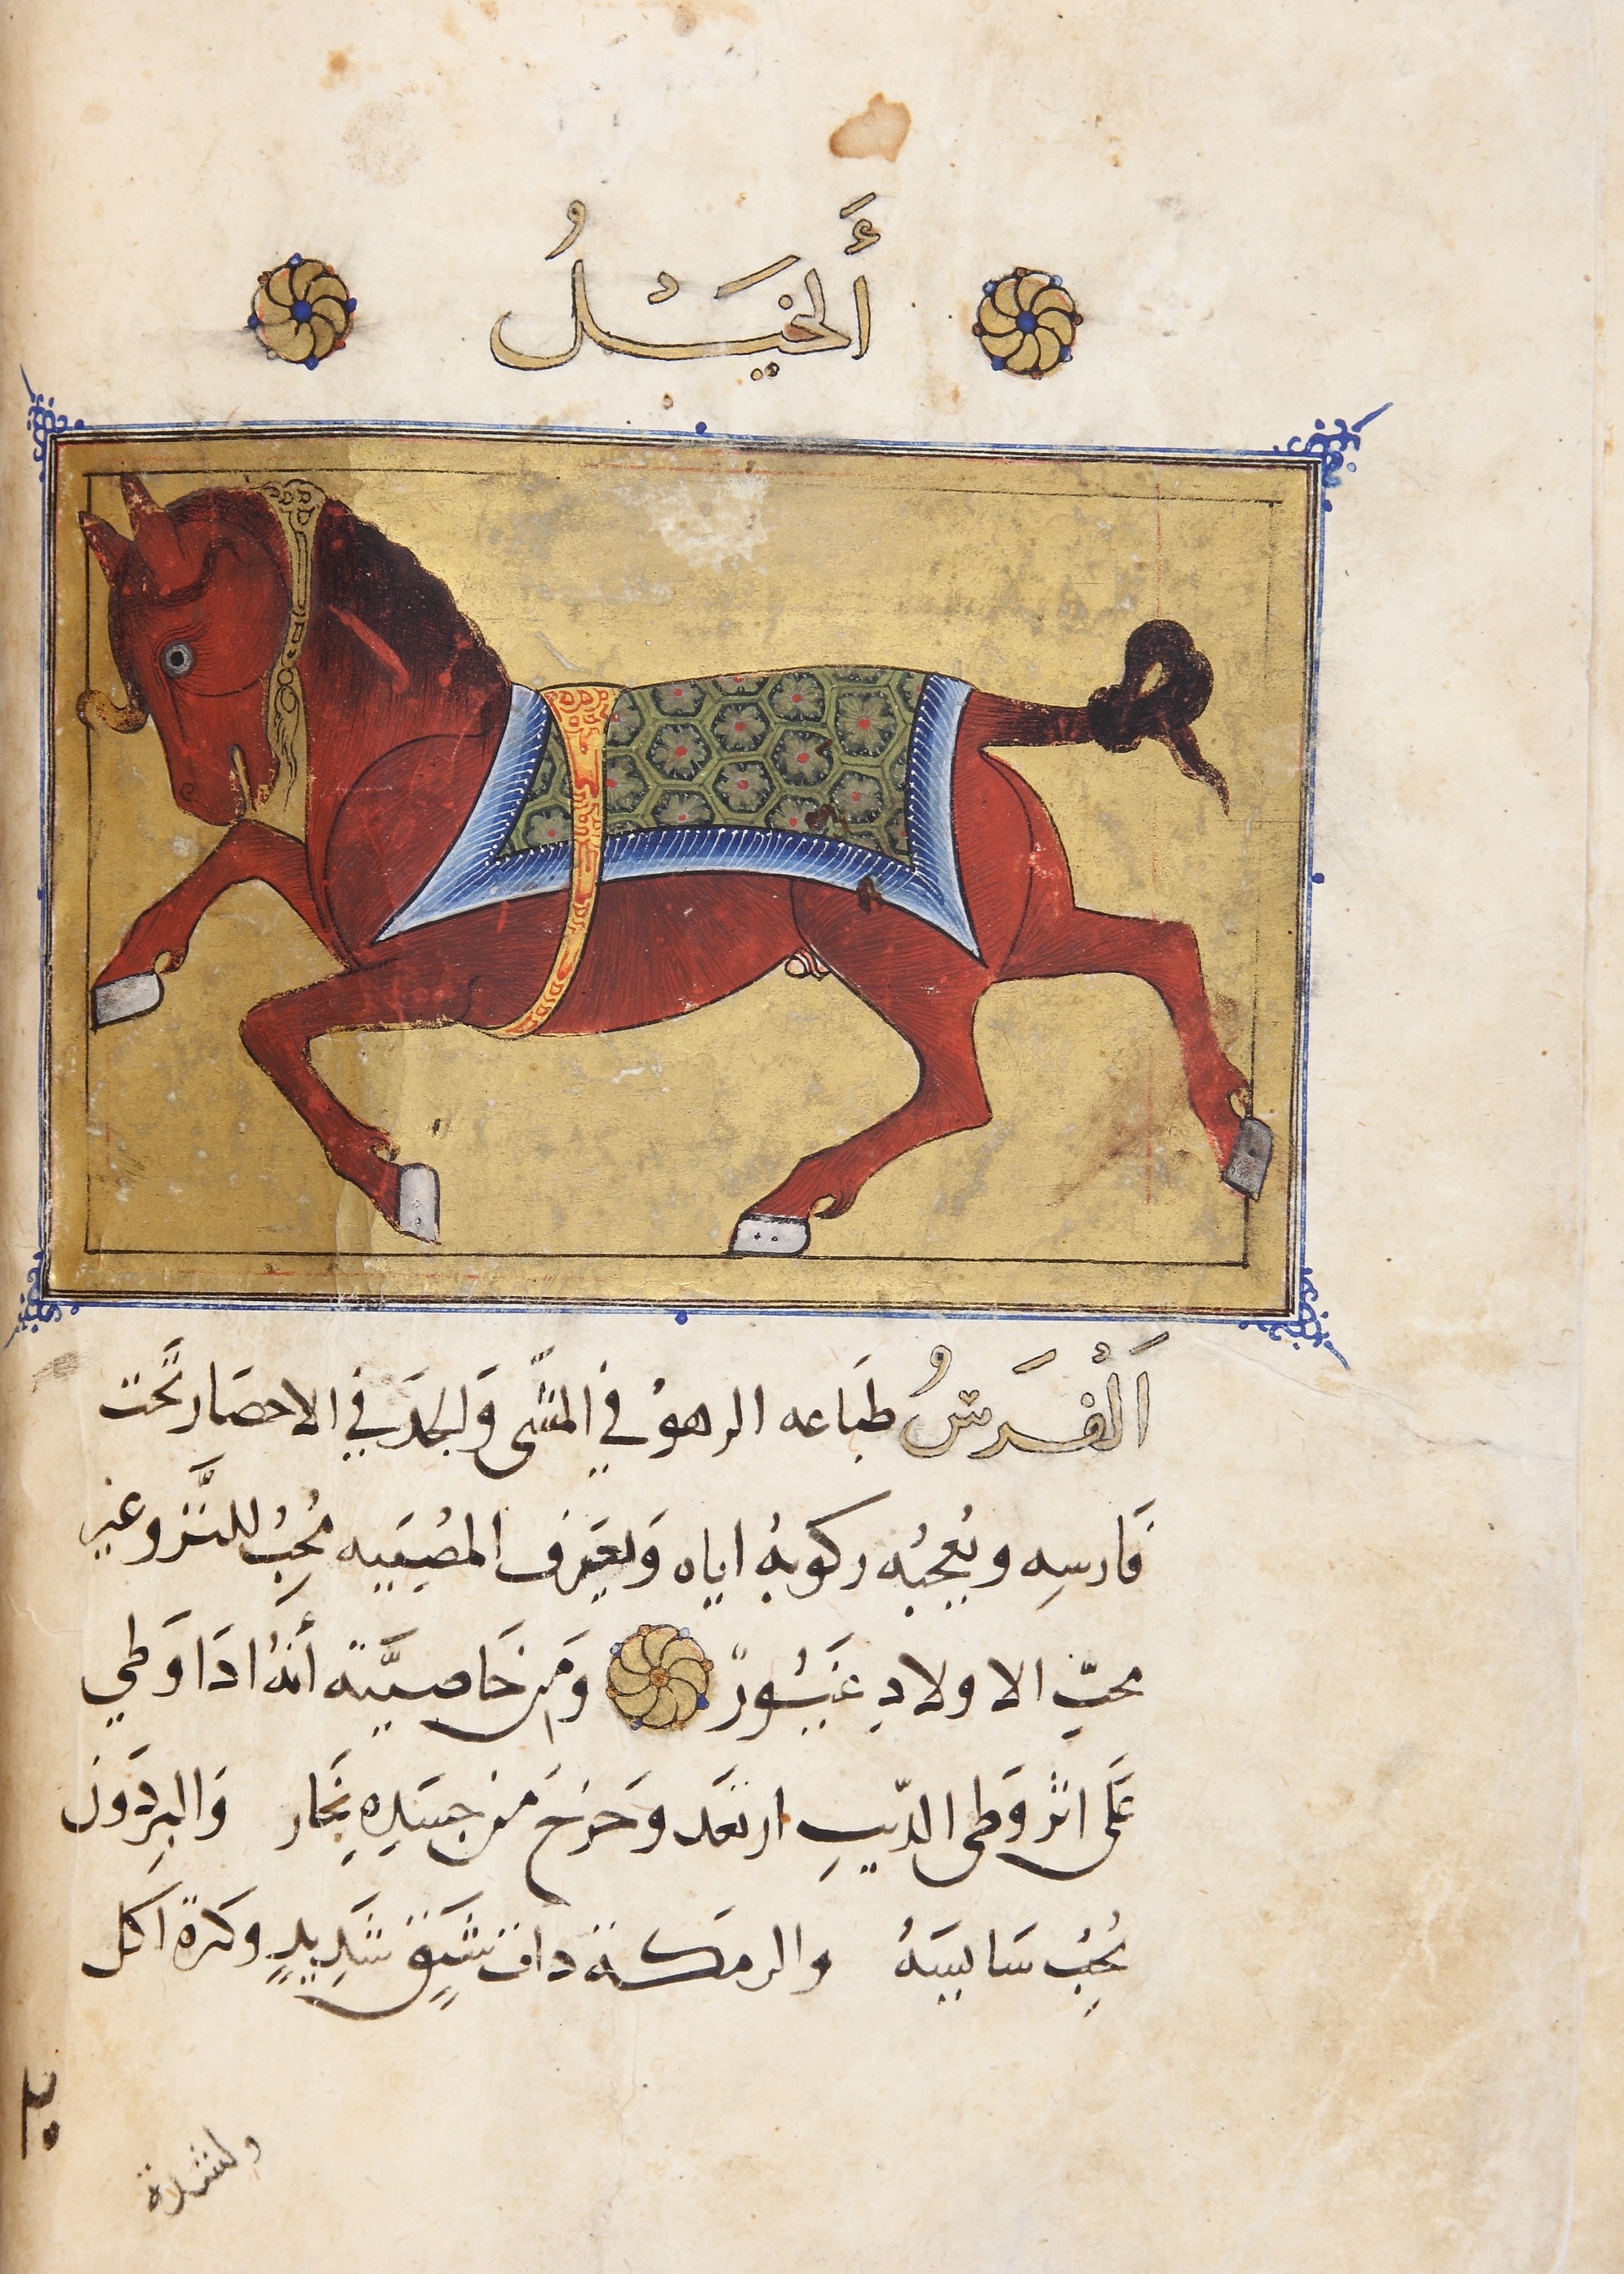 أَلخَيْلُ
اَلْفَرَسُ طَباعه الرهوُ في المشّي وَالجدَ في الاحضَار تَّحت
فَارسِه ويُعجبُه ركوبهُ اياه وَيعَرف المصُيَبيه مُحِبُ للنَّزو غير
محبِّ الاولادِ غَيُورً وَمِن خَاصيَّته أنهُ ادَا وَطي
عَلى اثر وَطى الدّيبِ ارتعَد وَخرَج من جسَدِه بُخَار وَالبِردَون
يُحِبُ سَايسَهُ والرمَكة دات شَبَقٍ شَدِيدٍ وكثرة اكل
ولشدة